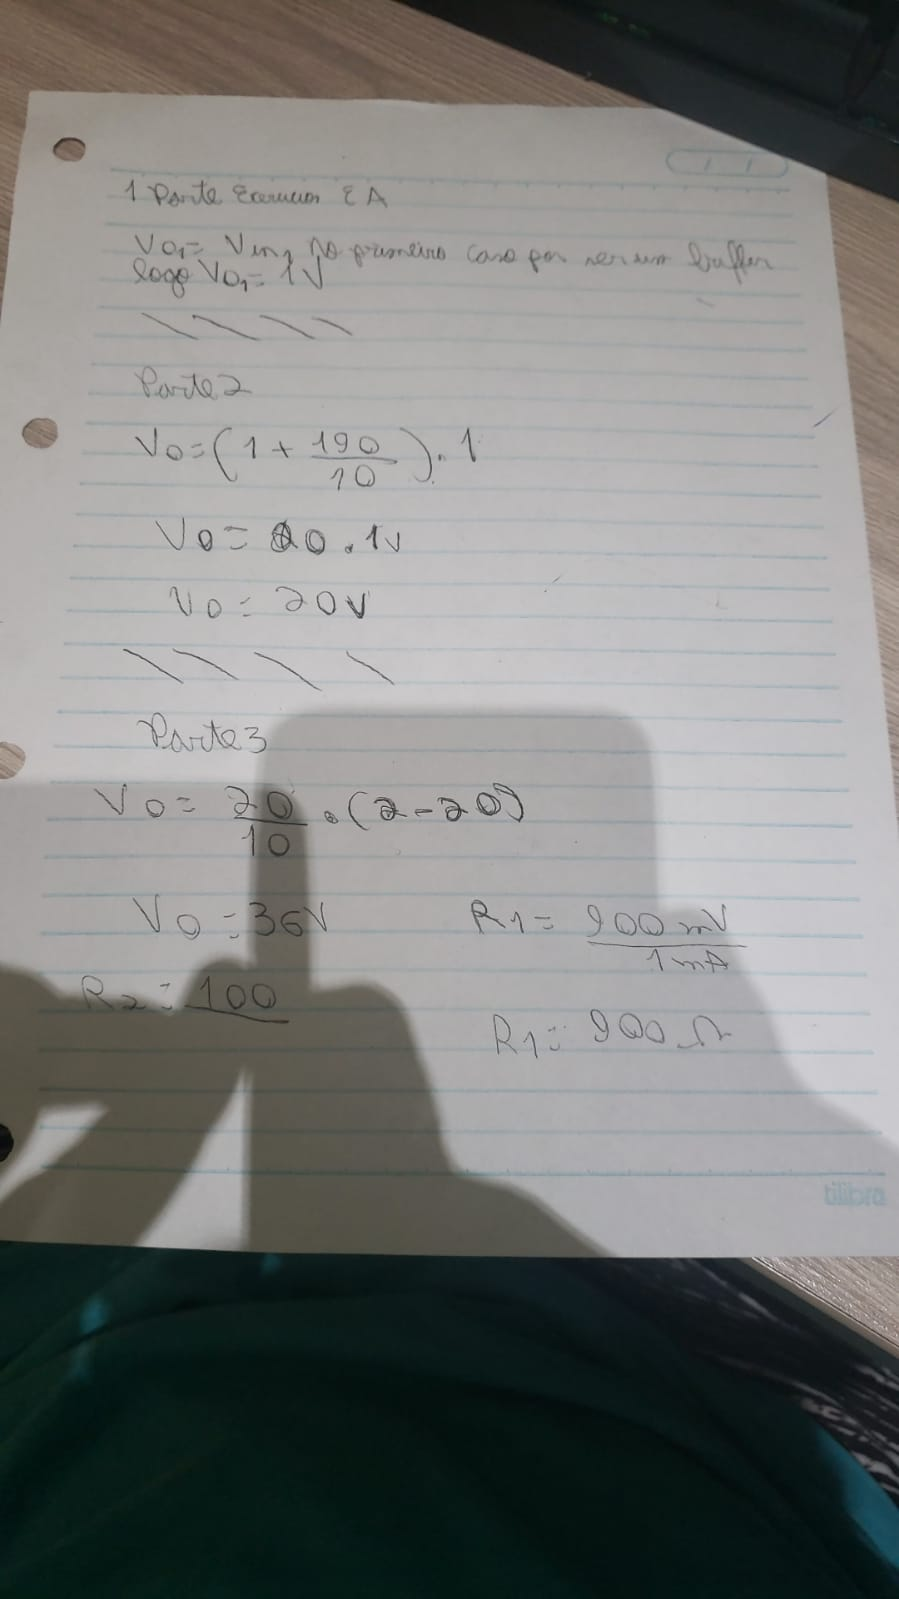 1 Parte Exercicios EA
Vo₁= Vin, No primeiro caso por ser um buffer
logo Vo₁= 1V
Parte 2
Vo=(1+190/10).1
Vo= 20.1v
Vo= 20v
Parte 3
Vo= 20/10 .(2-20)
Vo=36V
R1= 900mV/1mA
R2= 100
R1= 900Ω
tilibra